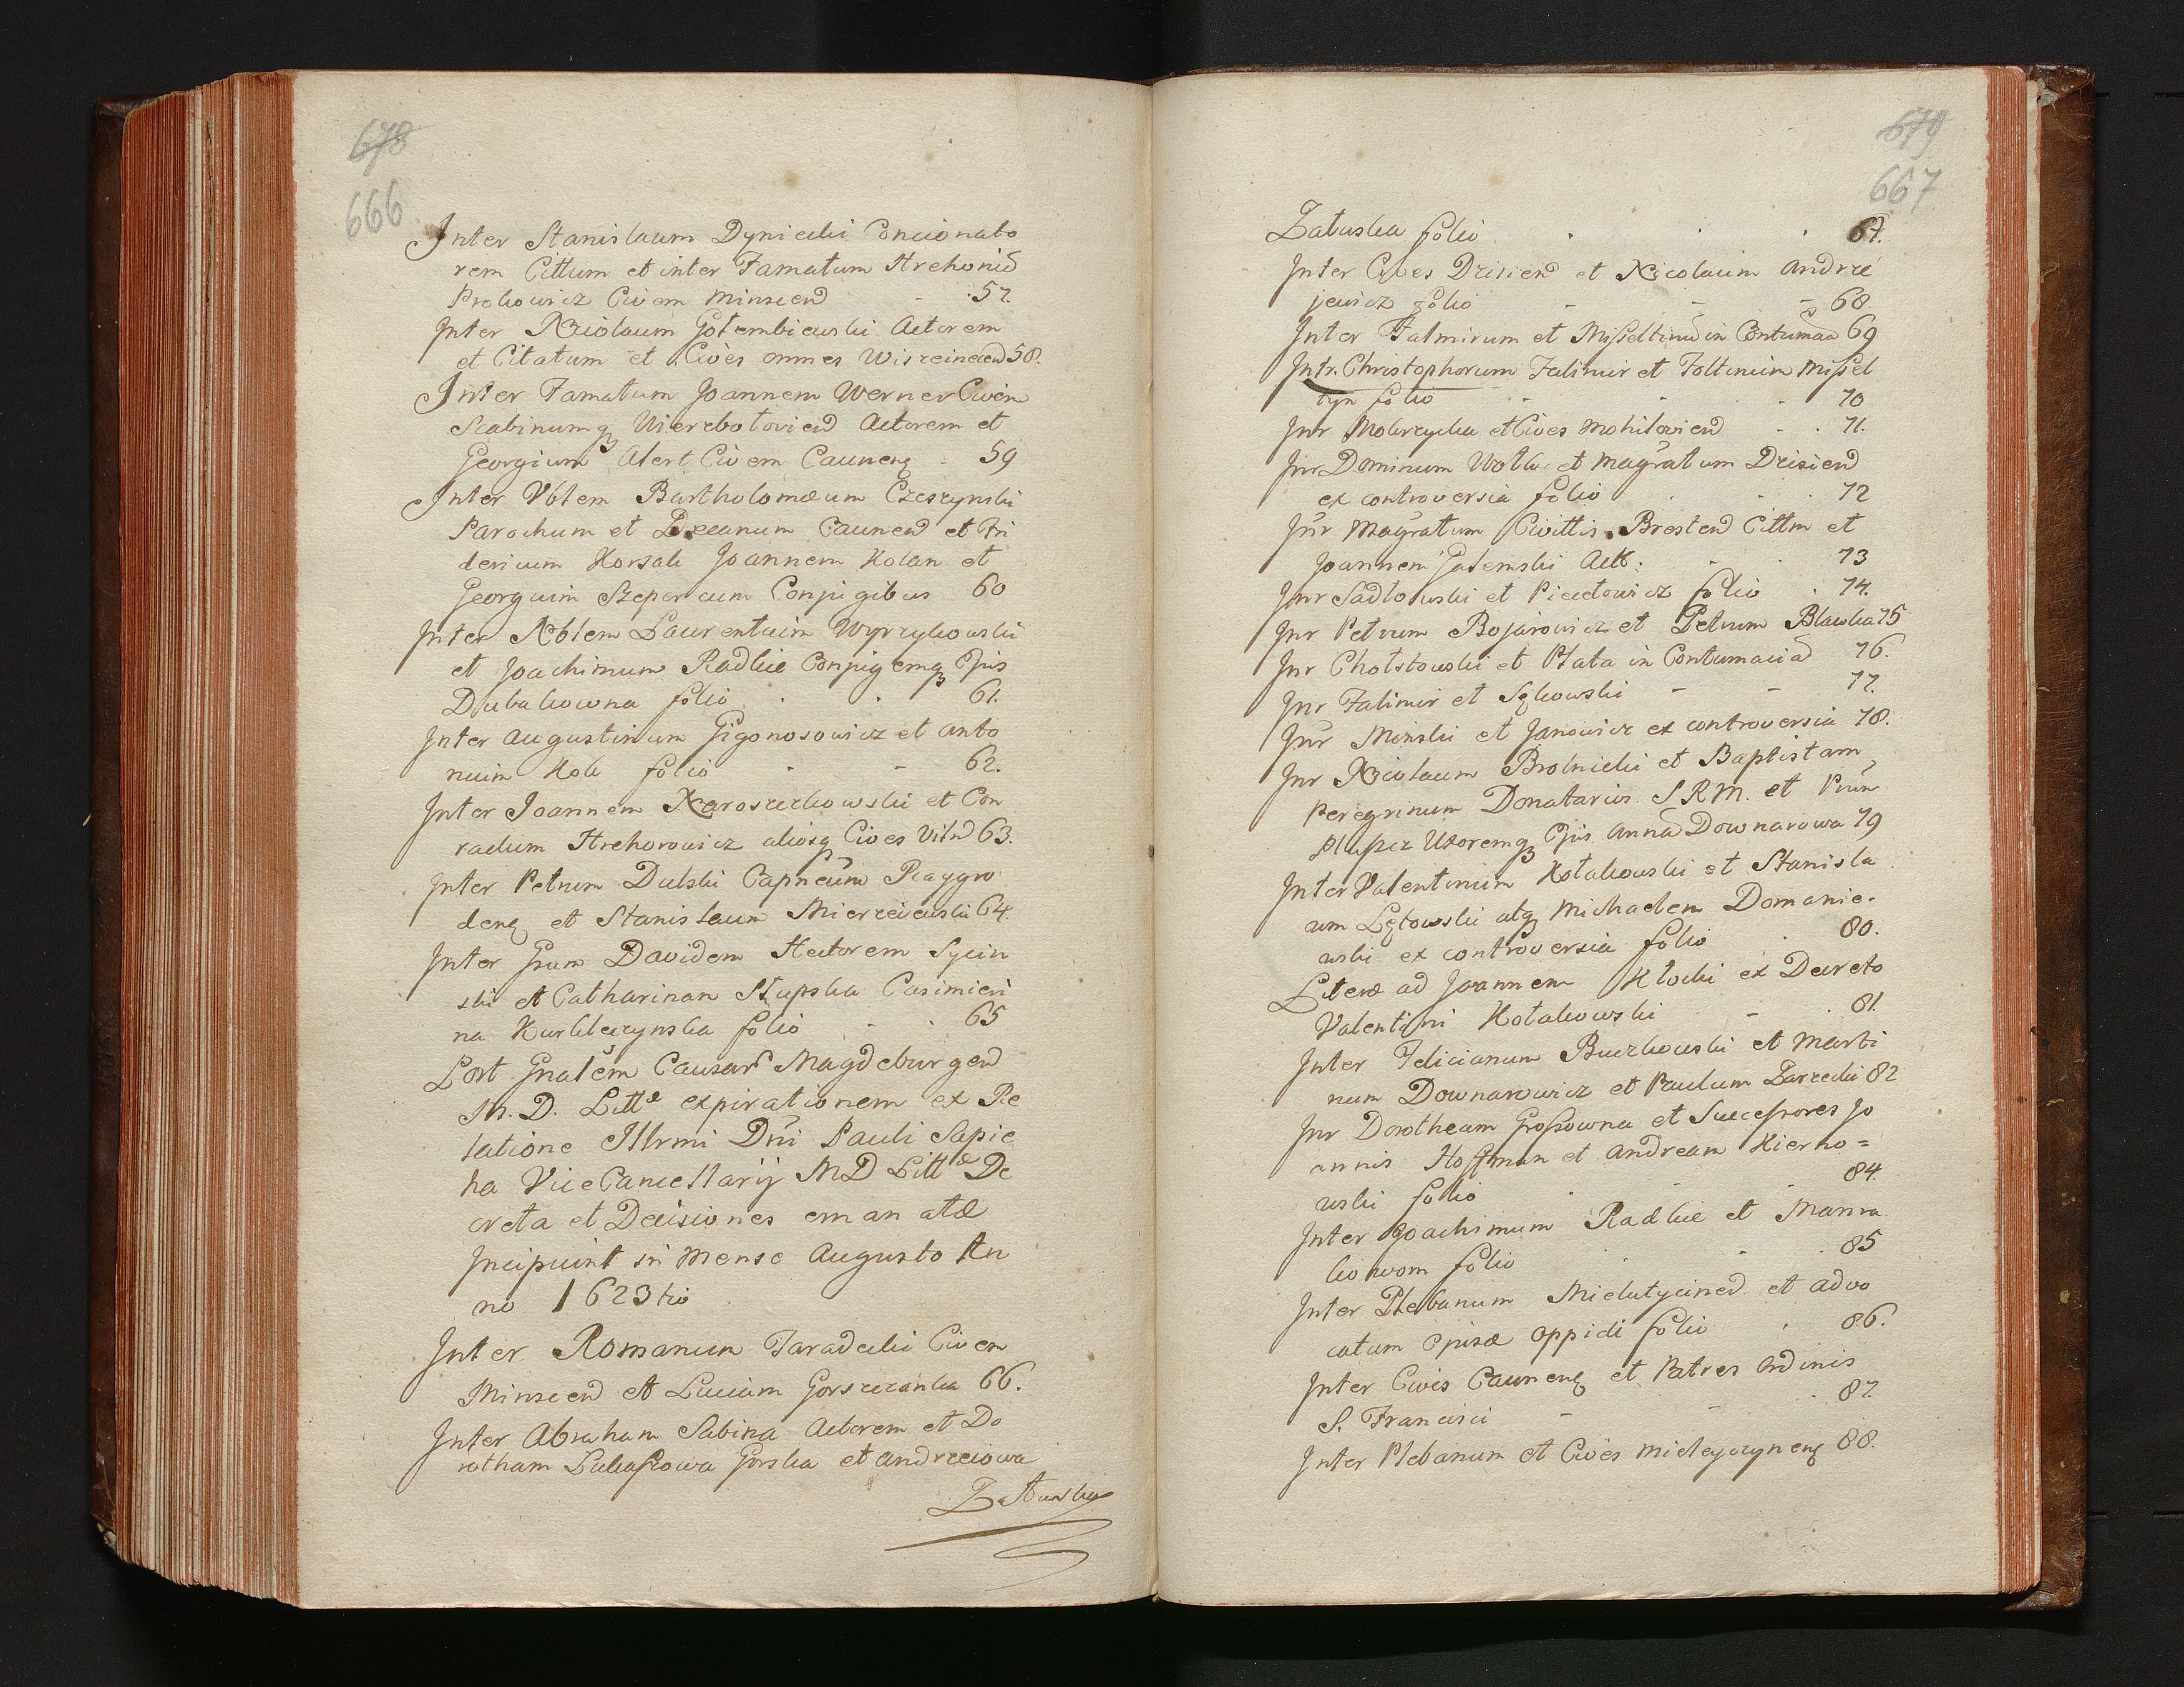 678
666
Inter Stanislaum Dynicki Concionato
rem Cittum et inter Famatum Hrehoriu
Prokowicz Civem Minscen
57.
Inter Nicolaum Gołembiewski Actorem
et Citatum et Cives omnes Wisztinecen 58.
Inter Famatum Joannem Werner Civem
Scabinumq Wierzbołovien Actorem et
Georgium Alert Civem Caunenq 59
Inter Vblem Bartholomæum Czeszynski
Parochum et Decanum Caunen et Fri
dericum Korsak Joannem Kolan et
Georgium Szeper cum Conjugibus 60
Inter Nblem Laurentium Wyrzykowski
et Joachimum Radkie Conjugemq Ejus
Dubakowna folio 61.
Inter Augustinum Gigonosowicz et Anto
nium Kok folio 62.
Inter Joannem Naroszczkowski et Con
radum Hrehorowicz aliosq Cives Viln 63.
Inter Petrum Dulski Capneum Raygro
denq et Stanislaum Mierzeiewski 64.
Inter Gsum Davidem Hectorem Sycin
ski et Catharinam Słupska Casimieri
na Kurkleczynska folio 65
Post Gnalem Causar Magdeburgen
M. D. Littæ expirationem ex Re
latione Illrmi Dni Pauli Sapie
ha Vice Cancellarij M D Littæ De
creta et Decisiones emanatæ
Incipiunt in Mense Augusto An
no 1623 tio
Inter Romanum Taradecki Civem
Minscen et Luciam Gorszczanka 66.
Inter Abraham Sabina Actorem et Do
rotham Lukaszowa Gorska et Andrzeiowa
Załuska
679
667
Załuska folio 67.
Inter Cives Drisien et Nicolaum Andrze
jewicz folio 68.
Inter Falmirum et Misseltinu in Contumacia 69
Intr. Christophorum Falimir et Foltinum Missel
tyn folio 70
Inr Mokrzycka et Cives Mohilovien 71.
Inr Dominum Wołk et Magratum Drisien
ex controversia folio 72
Inr Magratum Civittis Bresten Cittm et
Joannem Gałemski Actt. 73
Inr Sadłowski et Piectowicz folio 74.
Inr Petrum Bojarowicz et Petrum Blawka 75
Inr Chołstowski et Płata in Contumacia 76.
Inr Falimir et Sękowski 77.
Inr Minski et Janowicz ex controversia 78.
Inr Nicolaum Brolnicki et Baptistam
Peregrinum Donatarios S R M. et Prin
Pluszcz Uxoremq Ejus Anna Downarowa 79
Inter Valentinum Kołakowski et Stanisla
um Lętowski atq Michaelem Domanie.
wski ex controversia folio 80.
Literæ ad Joannem Kłocki ex Decreto
Valentini Kołakowski 81.
Inter Felicianum Buczkowski et Marti
num Downarowicz et Paulum Zarzecki 82
Inr Dorotheam Grossowna et Successores Jo
annis Hoffman et Andream Kierno=
wski folio 84.
Inter Joachimum Radkie et Manna
kowom folio 85
Inter Plebanum Mielutycined et Advo
catum Ejusd Oppidi folio 86.
Inter Cives Caunenq et Patres Ordinis
S. Francisci 87.
Inter Plebanum et Cives Mielejczynenq 88.